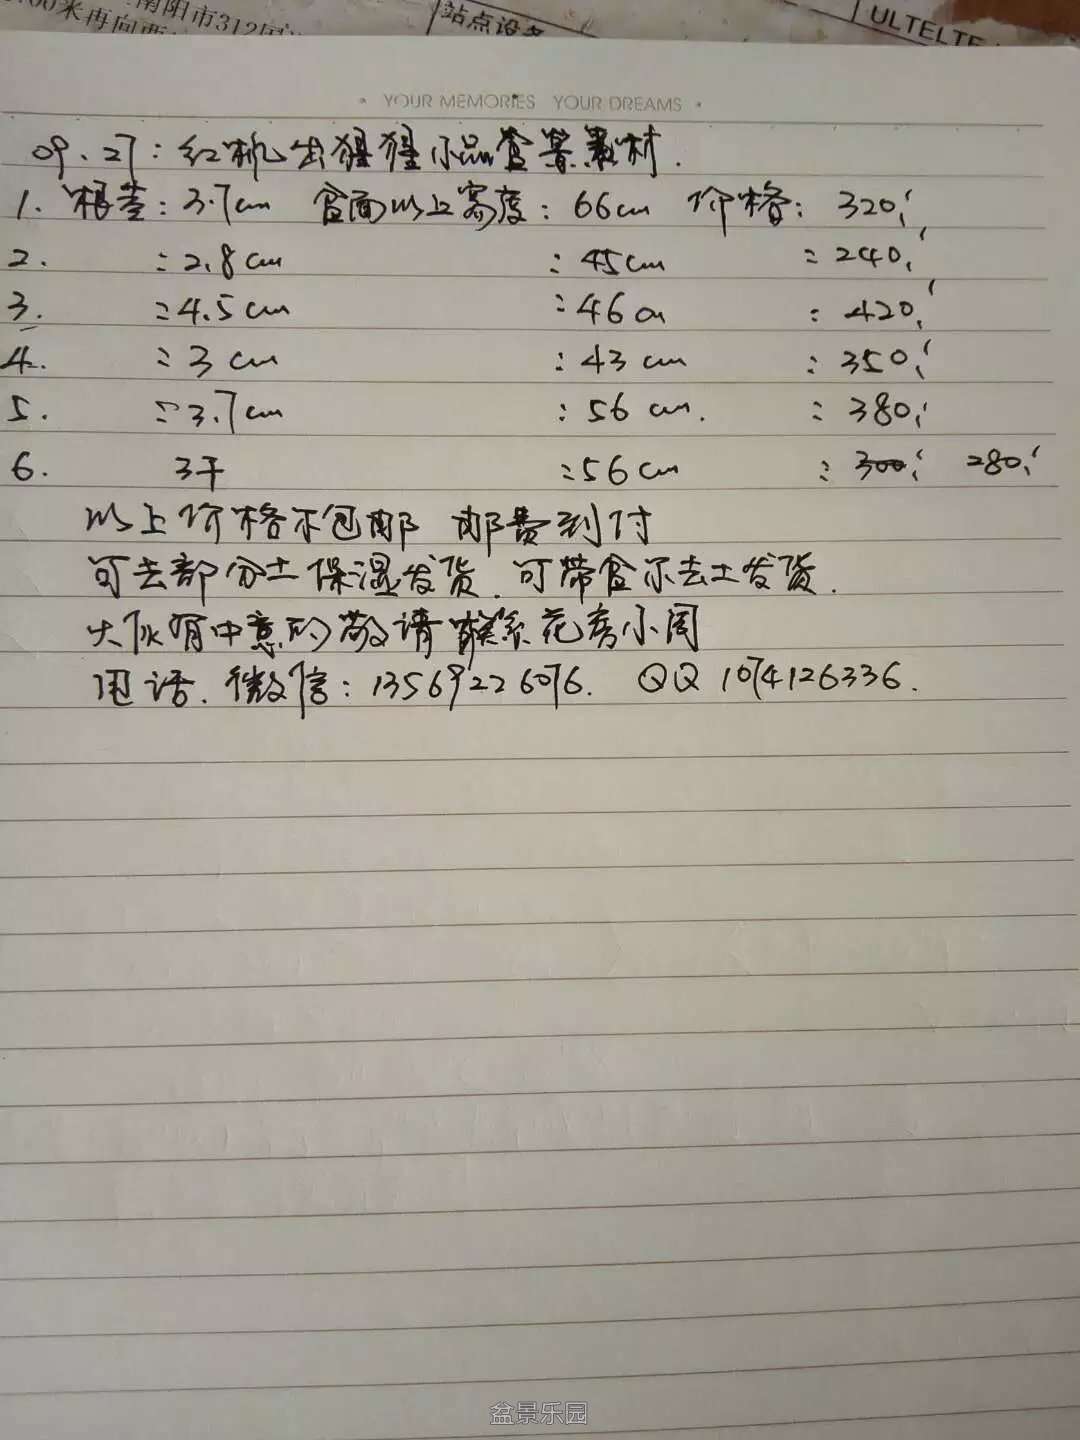 南阳市312国
00米再向西
站点设备
ULTELTE
YOUR MEMORIES YOUR DREAMS
09.27：红枫出猩猩小品盆景素材.
1. 根茎：3.7cm 盆面以上高度：66cm 价格：320.
2. ：2.8cm ：45cm ：240.
3. ：4.5cm ：46cm ：420.
4. ：3cm ：43cm ：350.
5. ：3.7cm ：56cm. ：380.
6. 3干 ：56cm ：300. 280.
以上价格不包邮 邮费到付
可去部分土保湿发货.可带盆不去土发货.
大伙有中意的敬请联系花房小周
电话.微信：13569226076. QQ 1074126336.
盆景乐园